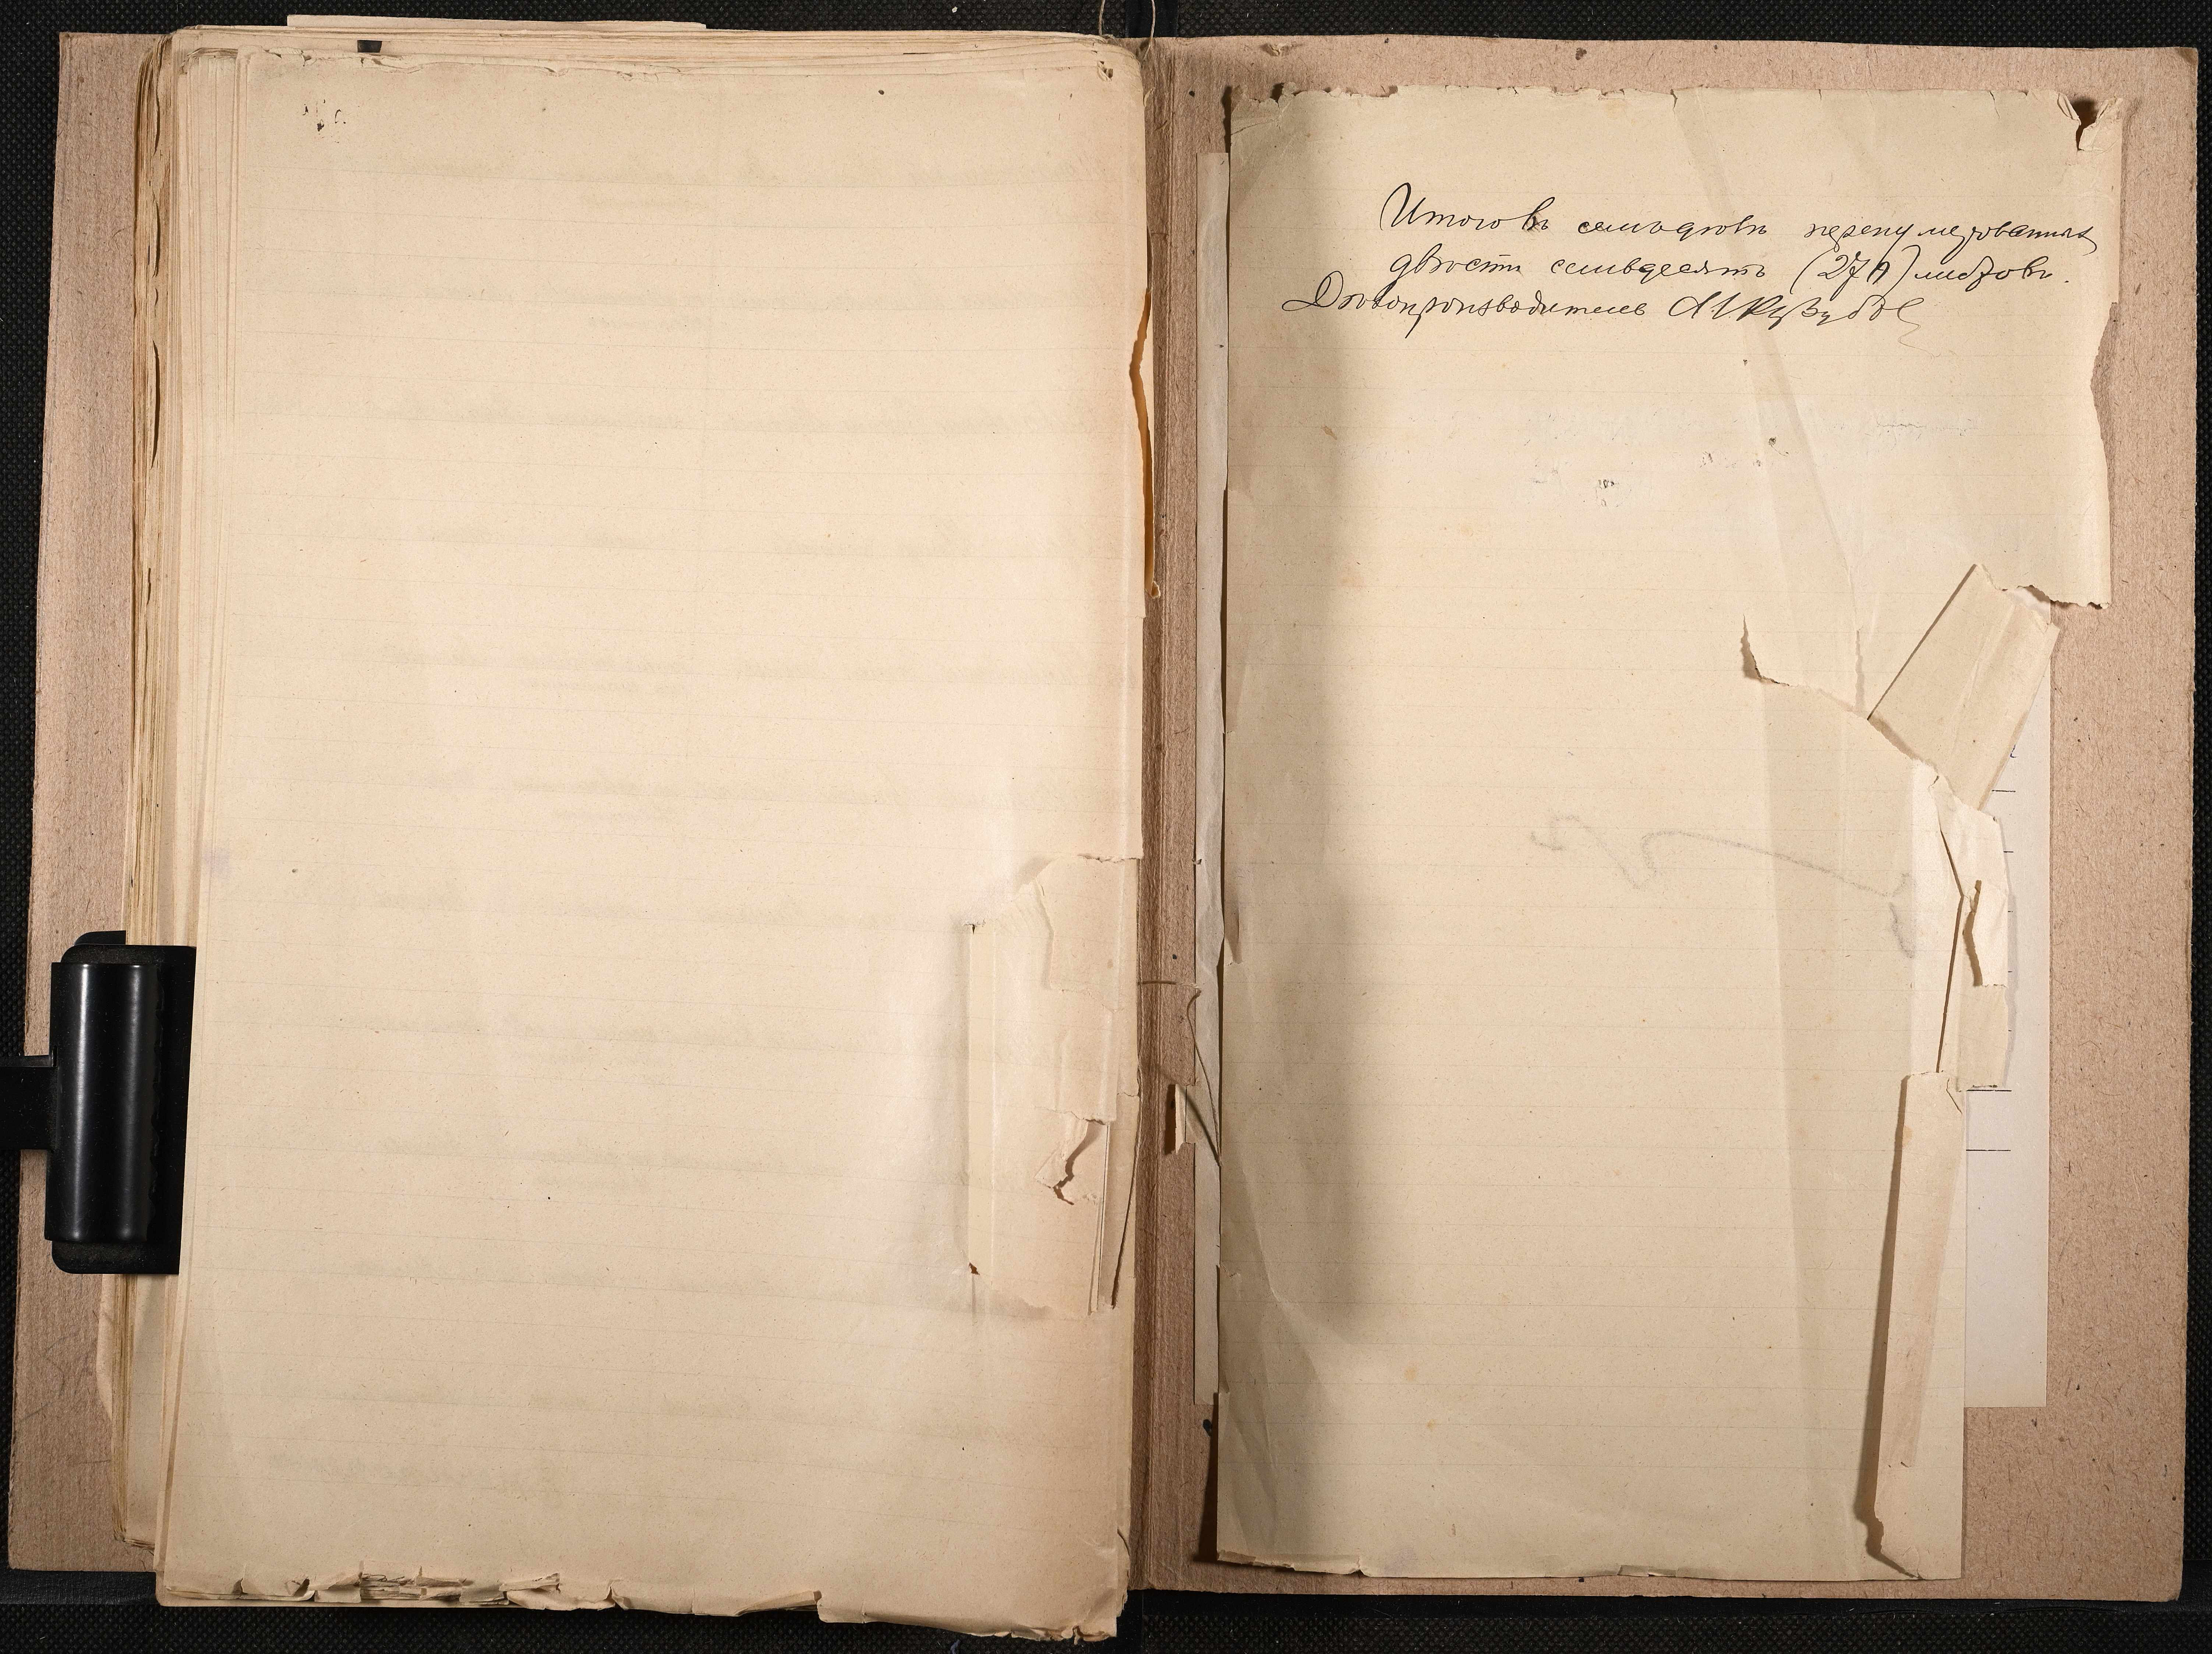 Итого въ семъ дѣлѣ перенумерованныхъ
двѣсти семьдесятъ (270) листовъ.
Дѣлопроизводитель